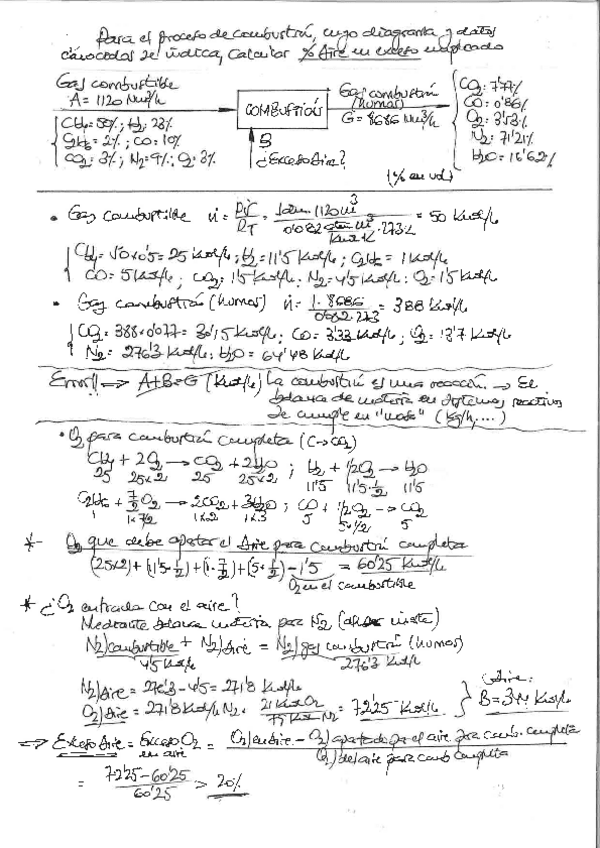 Para el proceso de combustión, cuyo diagrama y datos
conocidos se indica, Calcular % Aire en exceso empleado
Gas combustible
A = 1120 Nm³/h
CH4 = 50%; H2: 23%
C2H6 = 2%; CO = 10%
CO2: 3%; N2 = 9%; O2: 3%
COMBUSTIÓN
B
¿Exceso Aire?
Gas combustión
(humos)
G = 8686 Nm³/h
CO2: 7'77%
CO: 0'86%
O2: 3'53%
N2: 71'21%
H2O = 16'62%
(% en vol)
• Gas combustible ṅ = PV̇/RT = 1atm·1120 m³/0'082 atm·m³/Kmol·K·273K = 50 Kmol/h
CH4 = 50×0'5 = 25 Kmol/h; H2 = 11'5 Kmol/h; C2H6 = 1 Kmol/h
CO = 5 Kmol/h; CO2 = 1'5 Kmol/h; N2 = 4'5 Kmol/h; O2 = 1'5 Kmol/h
• Gas combustión (humos) ṅ = 1·8686/0'082·273 = 388 Kmol/h
CO2 = 388×0'077 = 30'15 Kmol/h; CO = 3'33 Kmol/h; O2 = 13'7 Kmol/h
N2 = 276'3 Kmol/h; H2O = 64'48 Kmol/h
Error!! → A+B=G (Kmol/h) La combustión es una reacción. → El
balance de materia en sistemas reactivos
se cumple en "masa" (Kg/h,....)
• O2 para combustión completa (C→CO2)
CH4 + 2O2 → CO2 + 2H2O ; H2 + 1/2O2 → H2O
25 25×2 25 25×2 11'5 11'5·1/2 11'5
C2H6 + 7/2 O2 → 2CO2 + 3H2O ; CO + 1/2O2 → CO2
1 1×7/2 1×2 1×3 5 5×1/2 5
*- O2 que debe aportar el Aire para combustión completa
(25×2)+(11'5·1/2)+(1·7/2)+(5·1/2)-1'5 = 60'25 Kmol/h
O2 en el combustible
* ¿O2 entrada con el aire?
Mediante balance materia para N2
N2)combustible + N2)Aire = N2)gas combustión (humos)
4'5 Kmol/h 276'3 Kmol/h
N2)Aire = 276'3-4'5 = 271'8 Kmol/h
O2)Aire = 271'8 Kmol/h N2 · 21 Kmol O2/79 Kmol N2 = 72'25 Kmol/h
Aire:
B = 344 Kmol/h
⇒ Exceso Aire = Exceso O2 en aire = O2)en aire - O2)aportado por el aire para comb. completa/O2)del aire para comb completa
= 72'25-60'25/60'25 > 20%